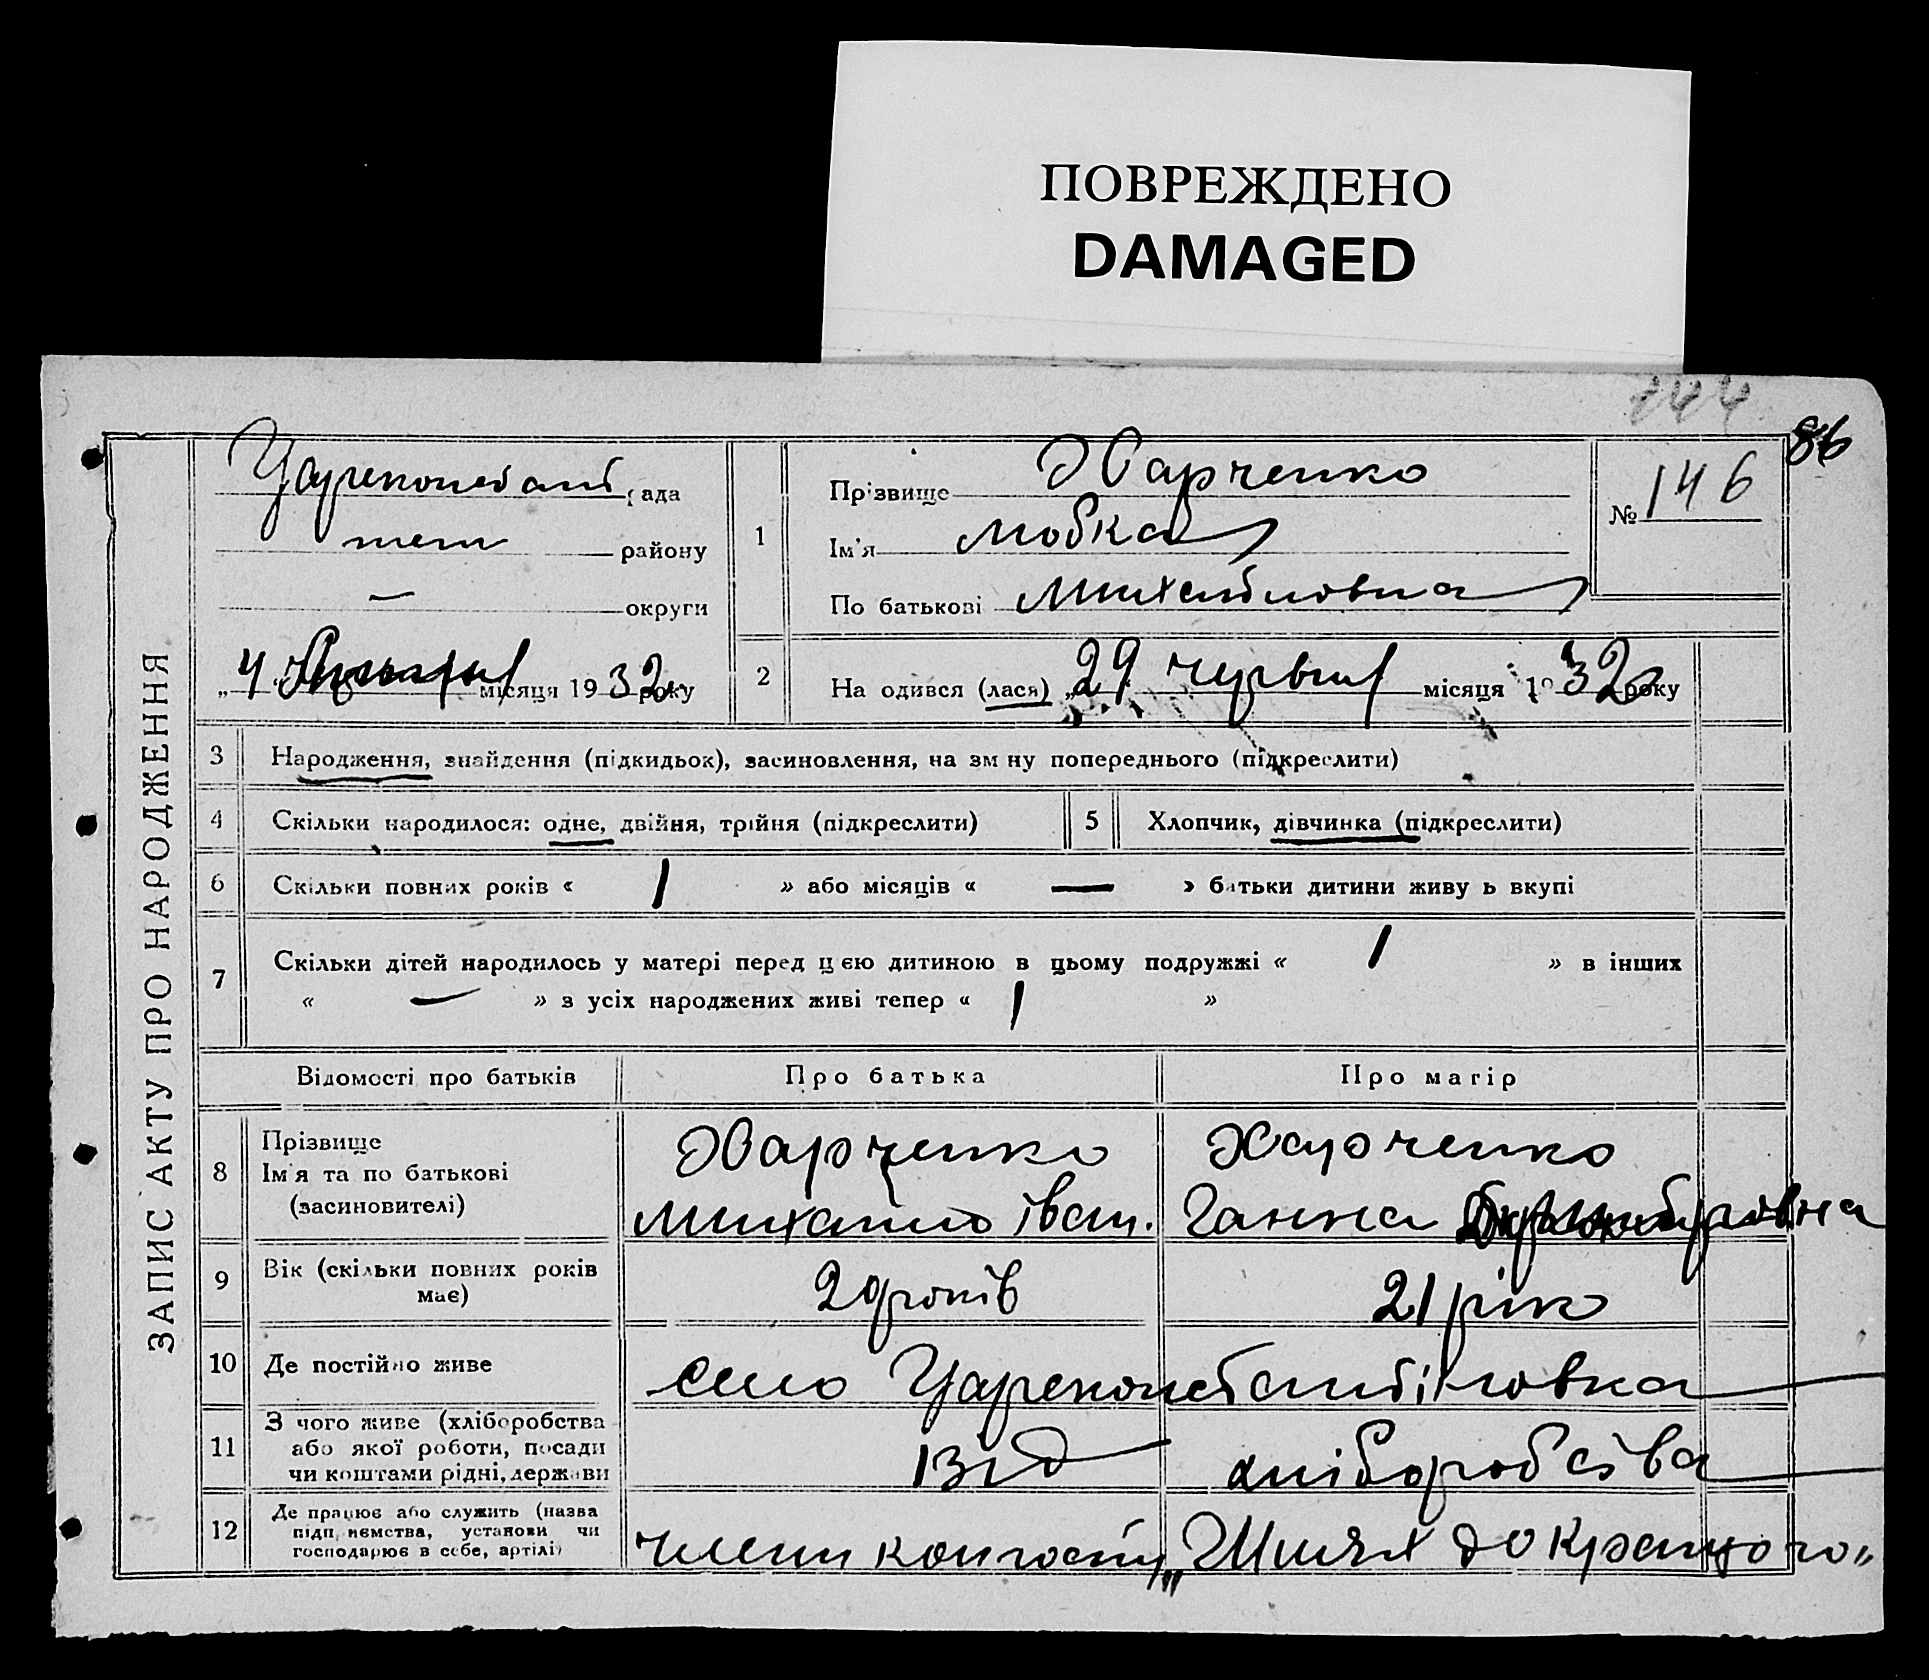 ПОВРЕЖДЕНО
DAMAGED
144
86
ЗАПИС АКТУ ПРО НАРОДЖЕННЯ
рада
району
— округи
„4“ місяця 1932 року
1
Прізвище Харченко
Ім'я Любка
По батькові Михайловна
№ 146
2
На одився (лася) „29 червня місяця 1932 року
3 Народження, знайдення (підкидьок), засиновлення, на зм ну попереднього (підкреслити)
4 Скільки народилося: одне, двійня, трійня (підкреслити)
5 Хлопчик, дівчинка (підкреслити)
6 Скільки повних років « 1 » або місяців « — » батьки дитини живу ь вкупі
7 Скільки дітей народилось у матері перед цією дитиною в цьому подружжі « 1 » в інших
« — » з усіх народжених живі тепер « 1 »
Відомості про батьків Про батька Про матір
8 Прізвище
Ім'я та по батькові
(засиновителі)
Харченко Харченко
Михайло Іван. Ганна
9 Вік (скільки повних років
має)
29 років 21 рік
10 Де постійно живе
село Цареконстантіновка
11 З чого живе (хліборобства
або якої роботи, посади
чи коштами рідні, держави
Від хліборобства
12 Де працює або служить (назва
підп иємства, установи чи
господарює в себе, артілі)
члени колгоспу „Шлях до кращого“